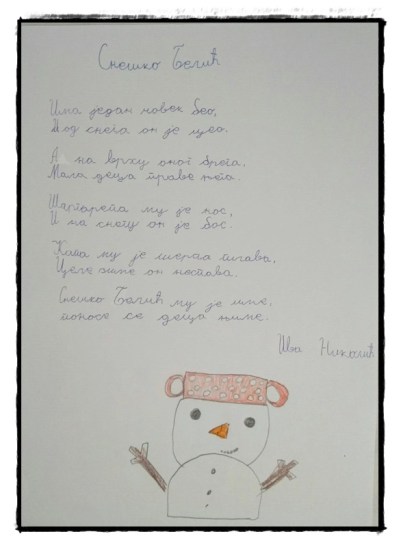 Снешко Белић
Има један човек бео,
Од снега он је цео.
А на врху оног брега,
Мала деца праве њега.
Шаргарепа му је нос,
И на снегу он је бос.
Капа му је шерпа плава,
Целе зиме он не спава.
Снешко Белић му је име,
поносе се деца њиме.
Ива Николић